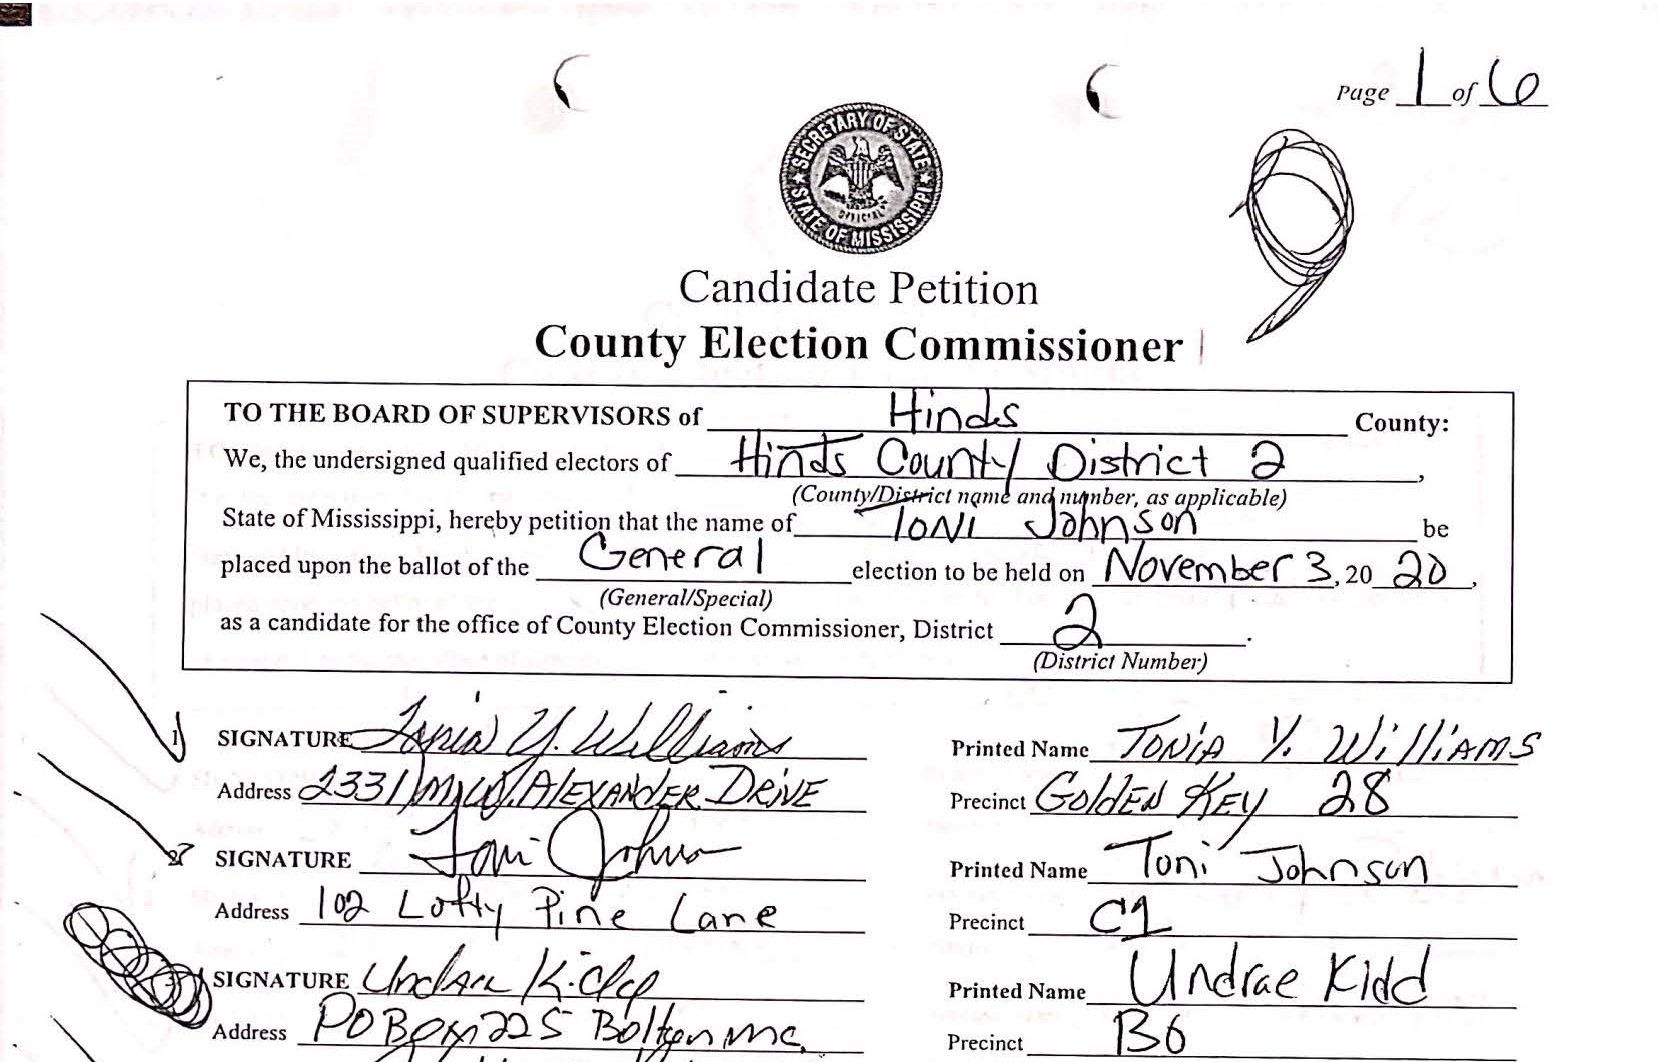 Page 1 of 6
SECRETARY OF STATE
OFFICIAL
STATE OF MISSISSIPPI
9
Candidate Petition
County Election Commissioner
TO THE BOARD OF SUPERVISORS of Hinds County:
We, the undersigned qualified electors of Hinds County District 2,
(County/District name and number, as applicable)
State of Mississippi, hereby petition that the name of Toni Johnson be
placed upon the ballot of the General election to be held on November 3, 20 20,
(General/Special)
as a candidate for the office of County Election Commissioner, District 2.
(District Number)
1 SIGNATURE Tonia Y. Williams Printed Name Tonia Y. Williams
Address 2331 M.W. Alexander Drive Precinct Golden Key 28
2 SIGNATURE Toni Johnson Printed Name Toni Johnson
Address 102 Lofty Pine Lane Precinct C1
3 SIGNATURE Undrae Kidd Printed Name Undrae Kidd
Address PO Box 225 Bolton Precinct B6